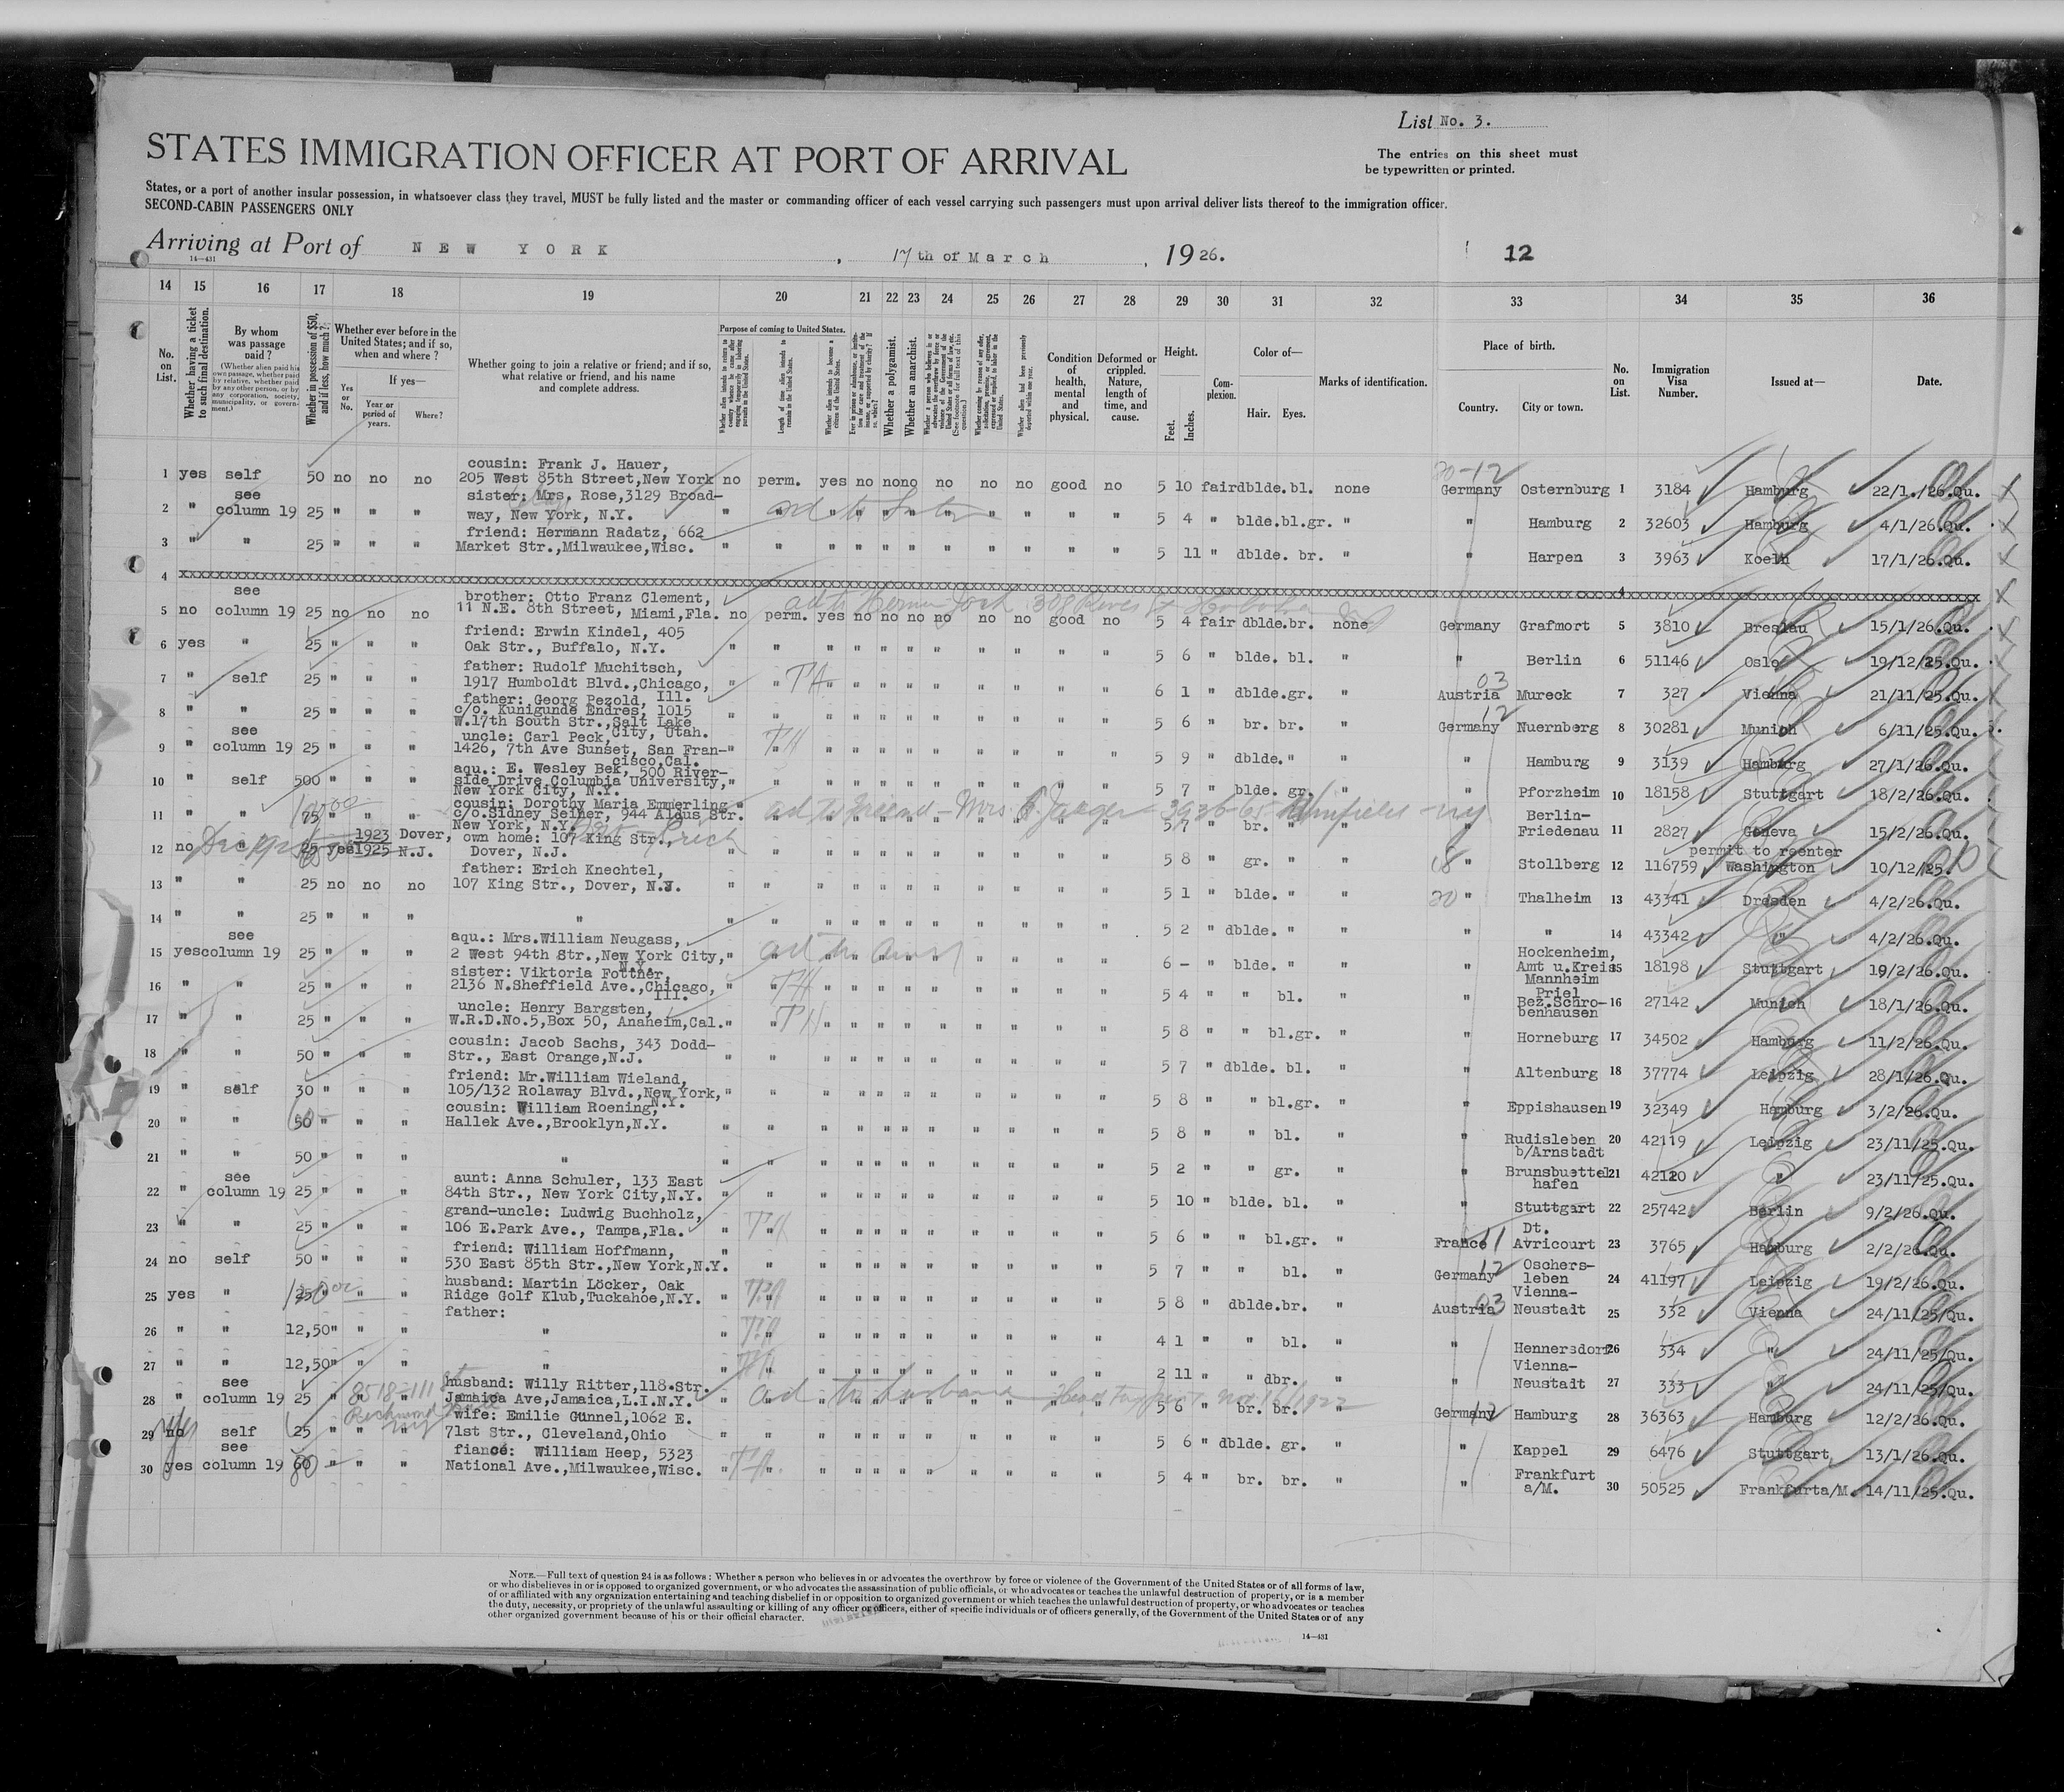 List No. 3.
STATES IMMIGRATION OFFICER AT PORT OF ARRIVAL
The entries on this sheet must
be typewritten or printed.
States, or a port of another insular possession, in whatsoever class they travel, MUST be fully listed and the master or commanding officer of each vessel carrying such passengers must upon arrival deliver lists thereof to the immigration officer.
SECOND-CABIN PASSENGERS ONLY
Arriving at Port of NEW YORK, 17th of March, 1926. 12
14—431
14 15 16 17 18 19 20 21 22 23 24 25 26 27 28 29 30 31 32 33 34 35 36
No. on List.
Whether having a ticket to such final destination.
By whom was passage paid?
(Whether alien paid his own passage, whether paid by relative, whether paid by any other person, or by any corporation, society, municipality, or government.)
Whether in possession of $50, and if less, how much?
Whether ever before in the United States; and if so, when and where?
Yes or No.
If yes—
Year or period of years.
Where?
Whether going to join a relative or friend; and if so, what relative or friend, and his name and complete address.
Purpose of coming to United States.
Length of time alien intends to remain in the United States.
Whether alien intends to become a citizen of the United States.
Whether a polygamist.
Whether an anarchist.
Condition of health, mental and physical.
Deformed or crippled. Nature, length of time, and cause.
Height.
Feet. Inches.
Complexion.
Color of—
Hair. Eyes.
Marks of identification.
Place of birth.
Country. City or town.
No. on List.
Immigration Visa Number.
Issued at—
Date.
cousin: Frank J. Hauer,
1 yes self 50 no no no 205 West 85th Street,New York no perm. yes no no no no no no good no 5 10 fair dblde. bl. none Germany Osternburg 1 3184 Hamburg 22/1./26.Qu.
see sister: Mrs. Rose,3129 Broad-
2 " column 19 25 " " " way, New York, N.Y. " " " " " " " " " " " 5 4 " blde. bl.gr. " " Hamburg 2 32603 Hamburg 4/1/26.Qu.
friend: Hermann Radatz, 662
3 " " 25 " " " Market Str.,Milwaukee,Wisc. " " " " " " " " " " " 5 11 " dblde. br. " " Harpen 3 3963 Koeln 17/1/26.Qu.
4 xxxxxxxxxxxxxxxxxxxxxxxxxxxxxxxx 4
see brother: Otto Franz Clement,
5 no column 19 25 no no no 11 N.E. 8th Street, Miami,Fla. no perm. yes no no no no no no good no 5 4 fair dblde. br. none Germany Grafmort 5 3810 Breslau 15/1/26.Qu.
friend: Erwin Kindel, 405
6 yes " 25 " " " Oak Str., Buffalo, N.Y. " " " " " " " " " " " 5 6 " blde. bl. " " Berlin 6 51146 Oslo 19/12/25.Qu.
father: Rudolf Muchitsch,
7 " self 25 " " " 1917 Humboldt Blvd.,Chicago, Ill. " " " " " " " " " " " 6 1 " dblde. gr. " Austria Mureck 7 327 Vienna 21/11/25.Qu.
father: Georg Pezold,
8 " " 25 " " " c/o. Kunigunde Endres, 1015
W.17th South Str.,Salt Lake City, Utah. 5 6 " br. br. " Germany Nuernberg 8 30281 Munich 6/11/25.Qu.
see uncle: Carl Peck,
9 " column 19 25 " " " 1426, 7th Ave Sunset, San Francisco,Cal. 5 9 " dblde. " " " Hamburg 9 3139 Hamburg 27/1/26.Qu.
aqu.: E. Wesley Bek, 500 River-
10 " self 500 " " " side Drive Columbia University,
New York City, N.Y. 5 7 " blde. gr. " " Pforzheim 10 18158 Stuttgart 18/2/26.Qu.
cousin: Dorothy Maria Emmerling
11 " " 75 " " " c/o.Sidney Seiner, 944 Aldus Str.
New York, N.Y. ad to friend - Mrs 5 7 " br. " " " Berlin-Friedenau 11 2827 Geneva 15/2/26.Qu.
12 no " 25 yes 1923 1925 Dover, N.J. own home: 107 King Str.,
Dover, N.J. 5 8 " gr. " " " Stollberg 12 116759 permit to reenter Washington 10/12/25.
father: Erich Knechtel,
13 " " 25 no no no 107 King Str., Dover, N.J. " " " " " " " " " " " 5 1 " blde. " " " Thalheim 13 43341 Dresden 4/2/26.Qu.
14 " " 25 " " " " " " " " " " " " " " " " 5 2 " dblde. " " " " 14 43342 " 4/2/26.Qu.
see aqu.: Mrs.William Neugass,
15 yes column 19 25 " " " 2 West 94th Str.,New York City, N.Y. 6 - " blde. " " " Hockenheim, Amt u.Kreis Mannheim 15 18198 Stuttgart 19/2/26.Qu.
sister: Viktoria Fottner,
16 " " 25 " " " 2136 N.Sheffield Ave.,Chicago, Ill. 5 4 " " bl. " " Priel Bez.Schrobenhausen 16 27142 Munich 18/1/26.Qu.
uncle: Henry Bargsten,
17 " " 25 " " " W.R.D.No.5,Box 50, Anaheim,Cal. 5 8 " " bl.gr. " " Horneburg 17 34502 Hamburg 11/2/26.Qu.
cousin: Jacob Sachs, 343 Dodd-
18 " " 50 " " " Str., East Orange,N.J. 5 7 " dblde. bl. " " Altenburg 18 37774 Leipzig 28/1/26.Qu.
friend: Mr.William Wieland,
19 " self 30 " " " 105/132 Rolaway Blvd.,New York, N.Y. 5 8 " " bl.gr. " " Eppishausen 19 32349 Hamburg 3/2/26.Qu.
cousin: William Roening,
20 " " 50 " " " Hallek Ave.,Brooklyn,N.Y. 5 8 " " bl. " " Rudisleben b/Arnstadt 20 42119 Leipzig 23/11/25.Qu.
21 " " 50 " " " " 5 2 " " gr. " " Brunsbuettelhafen 21 42120 " 23/11/25.Qu.
see aunt: Anna Schuler, 133 East
22 " column 19 25 " " " 84th Str., New York City,N.Y. 5 10 " blde. bl. " " Stuttgart 22 25742 Berlin 9/2/26.Qu.
grand-uncle: Ludwig Buchholz,
23 " " 25 " " " 106 E.Park Ave., Tampa,Fla. 5 6 " " bl.gr. " France Dt. Avricourt 23 3765 Hamburg 2/2/26.Qu.
friend: William Hoffmann,
24 no self 50 " " " 530 East 85th Str.,New York,N.Y. 5 7 " " bl. " Germany Oschersleben 24 41197 Leipzig 19/2/26.Qu.
husband: Martin Löcker, Oak
25 yes " 25 " " " Ridge Golf Klub,Tuckahoe,N.Y. 5 8 " dblde. br. " Austria Vienna-Neustadt 25 332 Vienna 24/11/25/Qu.
father:
26 " " 12,50 " " " " 4 1 " " bl. " " Hennersdorf 26 334 " 24/11/25/Qu.
27 " " 12,50 " " " " 2 11 " " dbr. " " Vienna-Neustadt 27 333 " 24/11/25/Qu.
see husband: Willy Ritter,118.Str.
28 " column 19 25 " " " Jamaica Ave,Jamaica,L.I.N.Y. ad to husband 5 6 " br. br. " Germany Hamburg 28 36363 Hamburg 12/2/26.Qu.
wife: Emilie Günnel,1062 E.
29 no yes self 25 " " " 71st Str., Cleveland,Ohio 5 6 " dblde. gr. " " Kappel 29 6476 Stuttgart 13/1/26.Qu.
see fiancé: William Heep, 5323
30 yes column 19 60 80 " " " National Ave.,Milwaukee,Wisc. 5 4 " br. br. " " Frankfurt a/M. 30 50525 Frankfurt a/M. 14/11/25.Qu.
NOTE.—Full text of question 24 is as follows: Whether a person who believes in or advocates the overthrow by force or violence of the Government of the United States or of all forms of law,
or who disbelieves in or is opposed to organized government, or who advocates the assassination of public officials, or who advocates or teaches the unlawful destruction of property, or is a member
of or affiliated with any organization entertaining and teaching disbelief in or opposition to organized government or which teaches the unlawful destruction of property, or who advocates or teaches
the duty, necessity, or propriety of the unlawful assaulting or killing of any officer or officers, either of specific individuals or of officers generally, of the Government of the United States or of any
other organized government because of his or their official character.
14—431